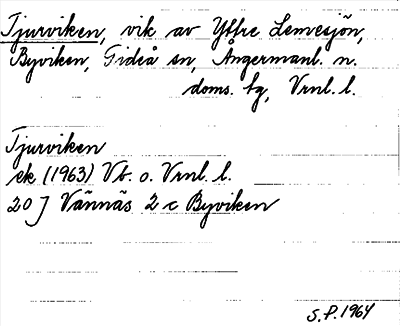 Tjurviken, vik av Yttre Lemesjön,
Byviken, Gideå sn, Ångermanl. n.
doms. hg, Vrnl. l.
Tjurviken
ek (1963) Vb. o. Vrnl. l.
20 J Vännäs 2 c Byviken
S.P. 1964